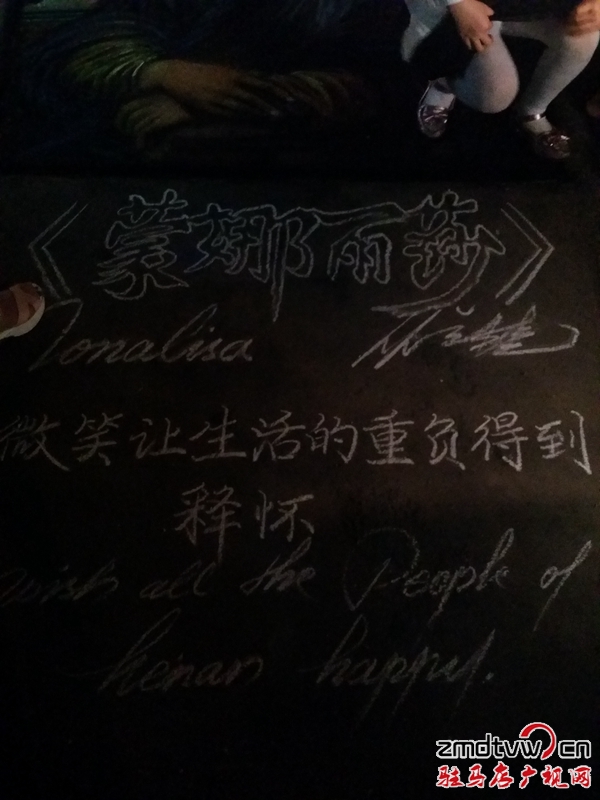 《蒙娜丽莎》
onalisa
微笑让生活的重负得到
释怀
wish all the People of
henan happy.
zmdtvw.cn
驻马店广视网